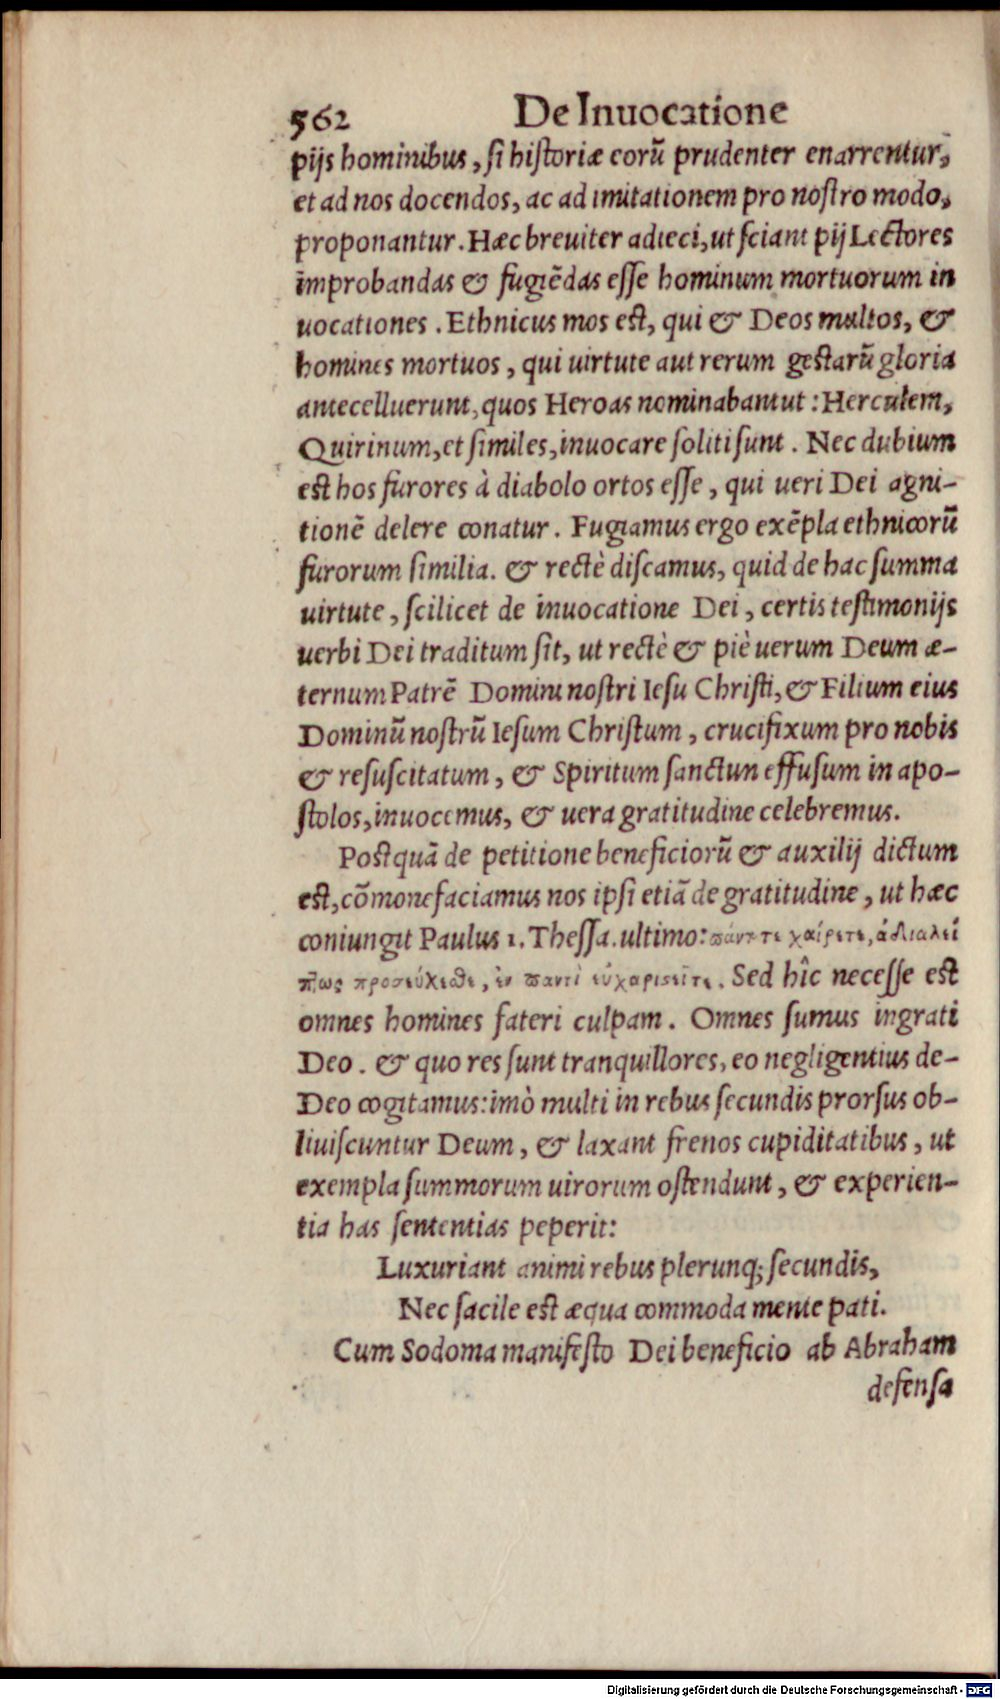 562 De Inuocatione
pijs hominibus, si historiæ eorũ prudenter enarrentur,
et ad nos docendos, ac ad imitationem pro nostro modo,
proponantur. Hæc breuiter adieci, ut sciant pij Lectores
improbandas & fugiẽdas esse hominum mortuorum in
uocationes. Ethnicus mos est, qui & Deos multos, &
homines mortuos, qui uirtute aut rerum gestarũ gloria
antecelluerunt, quos Heroas nominabantut: Herculem,
Quirinum, et similes, inuocare soliti sunt. Nec dubium
est hos furores à diabolo ortos esse, qui ueri Dei agni-
tionẽ delere conatur. Fugiamus ergo exẽpla ethnicorũ
furorum similia. & rectè discamus, quid de hac summa
uirtute, scilicet de inuocatione Dei, certis testimonijs
uerbi Dei traditum sit, ut rectè & piè uerum Deum æ-
ternum Patrẽ Domini nostri Iesu Christi, & Filium eius
Dominũ nostrũ Iesum Christum, crucifixum pro nobis
& resuscitatum, & Spiritum sanctun effusum in apo-
stolos, inuocemus, & uera gratitudine celebremus.
Postquã de petitione beneficiorũ & auxilij dictum
est, cõmonefaciamus nos ipsi etiã de gratitudine, ut hæc
coniungit Paulus 1. Thessa. ultimo: πάντοτε χαίρετε, ἀδιαλεί
πτως προσεύχεσθε, ἐν παντὶ εὐχαριστεῖτε. Sed hîc necesse est
omnes homines fateri culpam. Omnes sumus ingrati
Deo. & quo res sunt tranquillores, eo negligentius de-
Deo cogitamus: imò multi in rebus secundis prorsus ob-
liuiscuntur Deum, & laxant frenos cupiditatibus, ut
exempla summorum uirorum ostendunt, & experien-
tia has sententias peperit:
Luxuriant animi rebus plerunq; secundis,
Nec facile est æqua commoda mente pati.
Cum Sodoma manifesto Dei beneficio ab Abraham
defensa
Digitalisierung gefördert durch die Deutsche Forschungsgemeinschaft - DFG